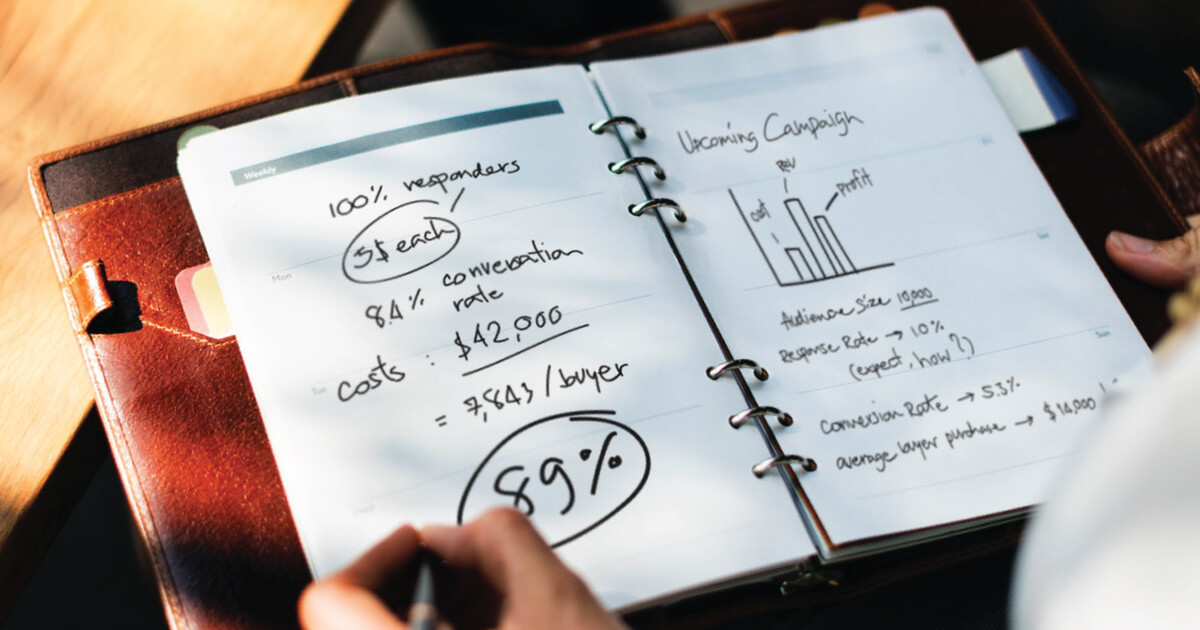 Weekly
100% responders
5$ each
Mon
8.4% conversation
rate
Tue
costs : $42,000
= 7,843 /buyer
89%
Upcoming Campaign
Rev
cost
profit
Audience Size 10,000
Response Rate → 10%
(expect, how?)
Sun
Conversion Rate → 5.3%
average buyer purchase → $14,000